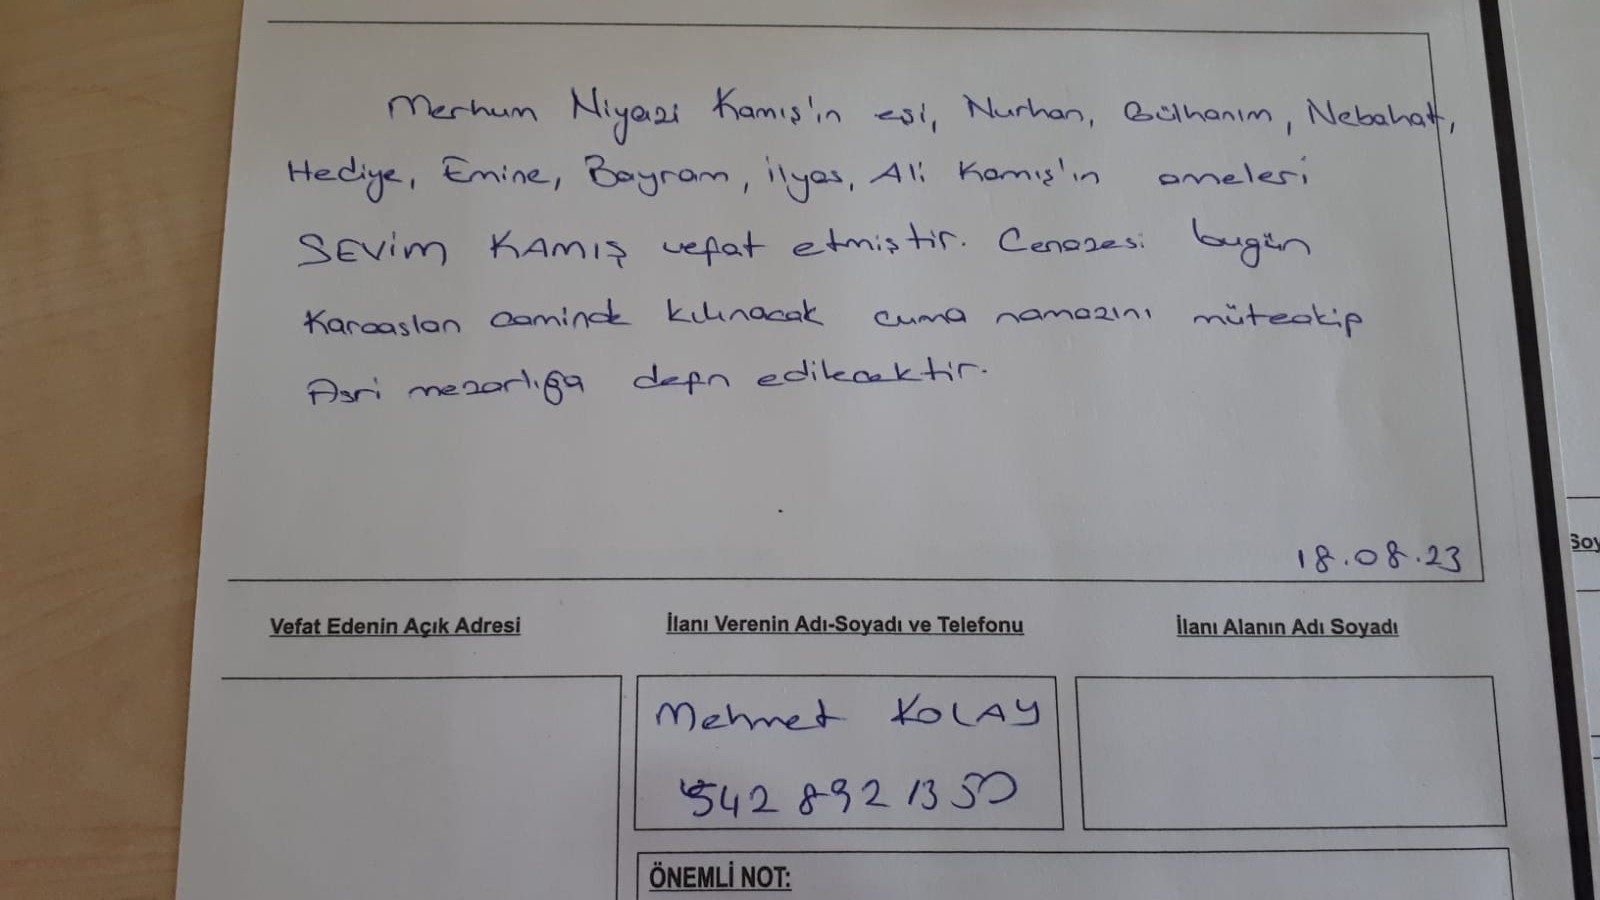 Merhum Niyazi Kamış'ın eşi, Nurhan, Gülhanım, Nebahat,
Hediye, Emine, Bayram, İlyas, Ali Kamış'ın anneleri
SEVİM KAMIŞ vefat etmiştir. Cenazesi bugün
Karaaslan caminde kılınacak cuma namazını müteakip
Asri mezarlığa defn edilecektir.
18.08.23
Vefat Edenin Açık Adresi
İlanı Verenin Adı-Soyadı ve Telefonu
İlanı Alanın Adı Soyadı
Mehmet KOLAY
542 892 13 50
ÖNEMLİ NOT:
Soy